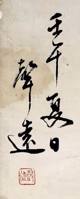 壬午夏日
聲遠